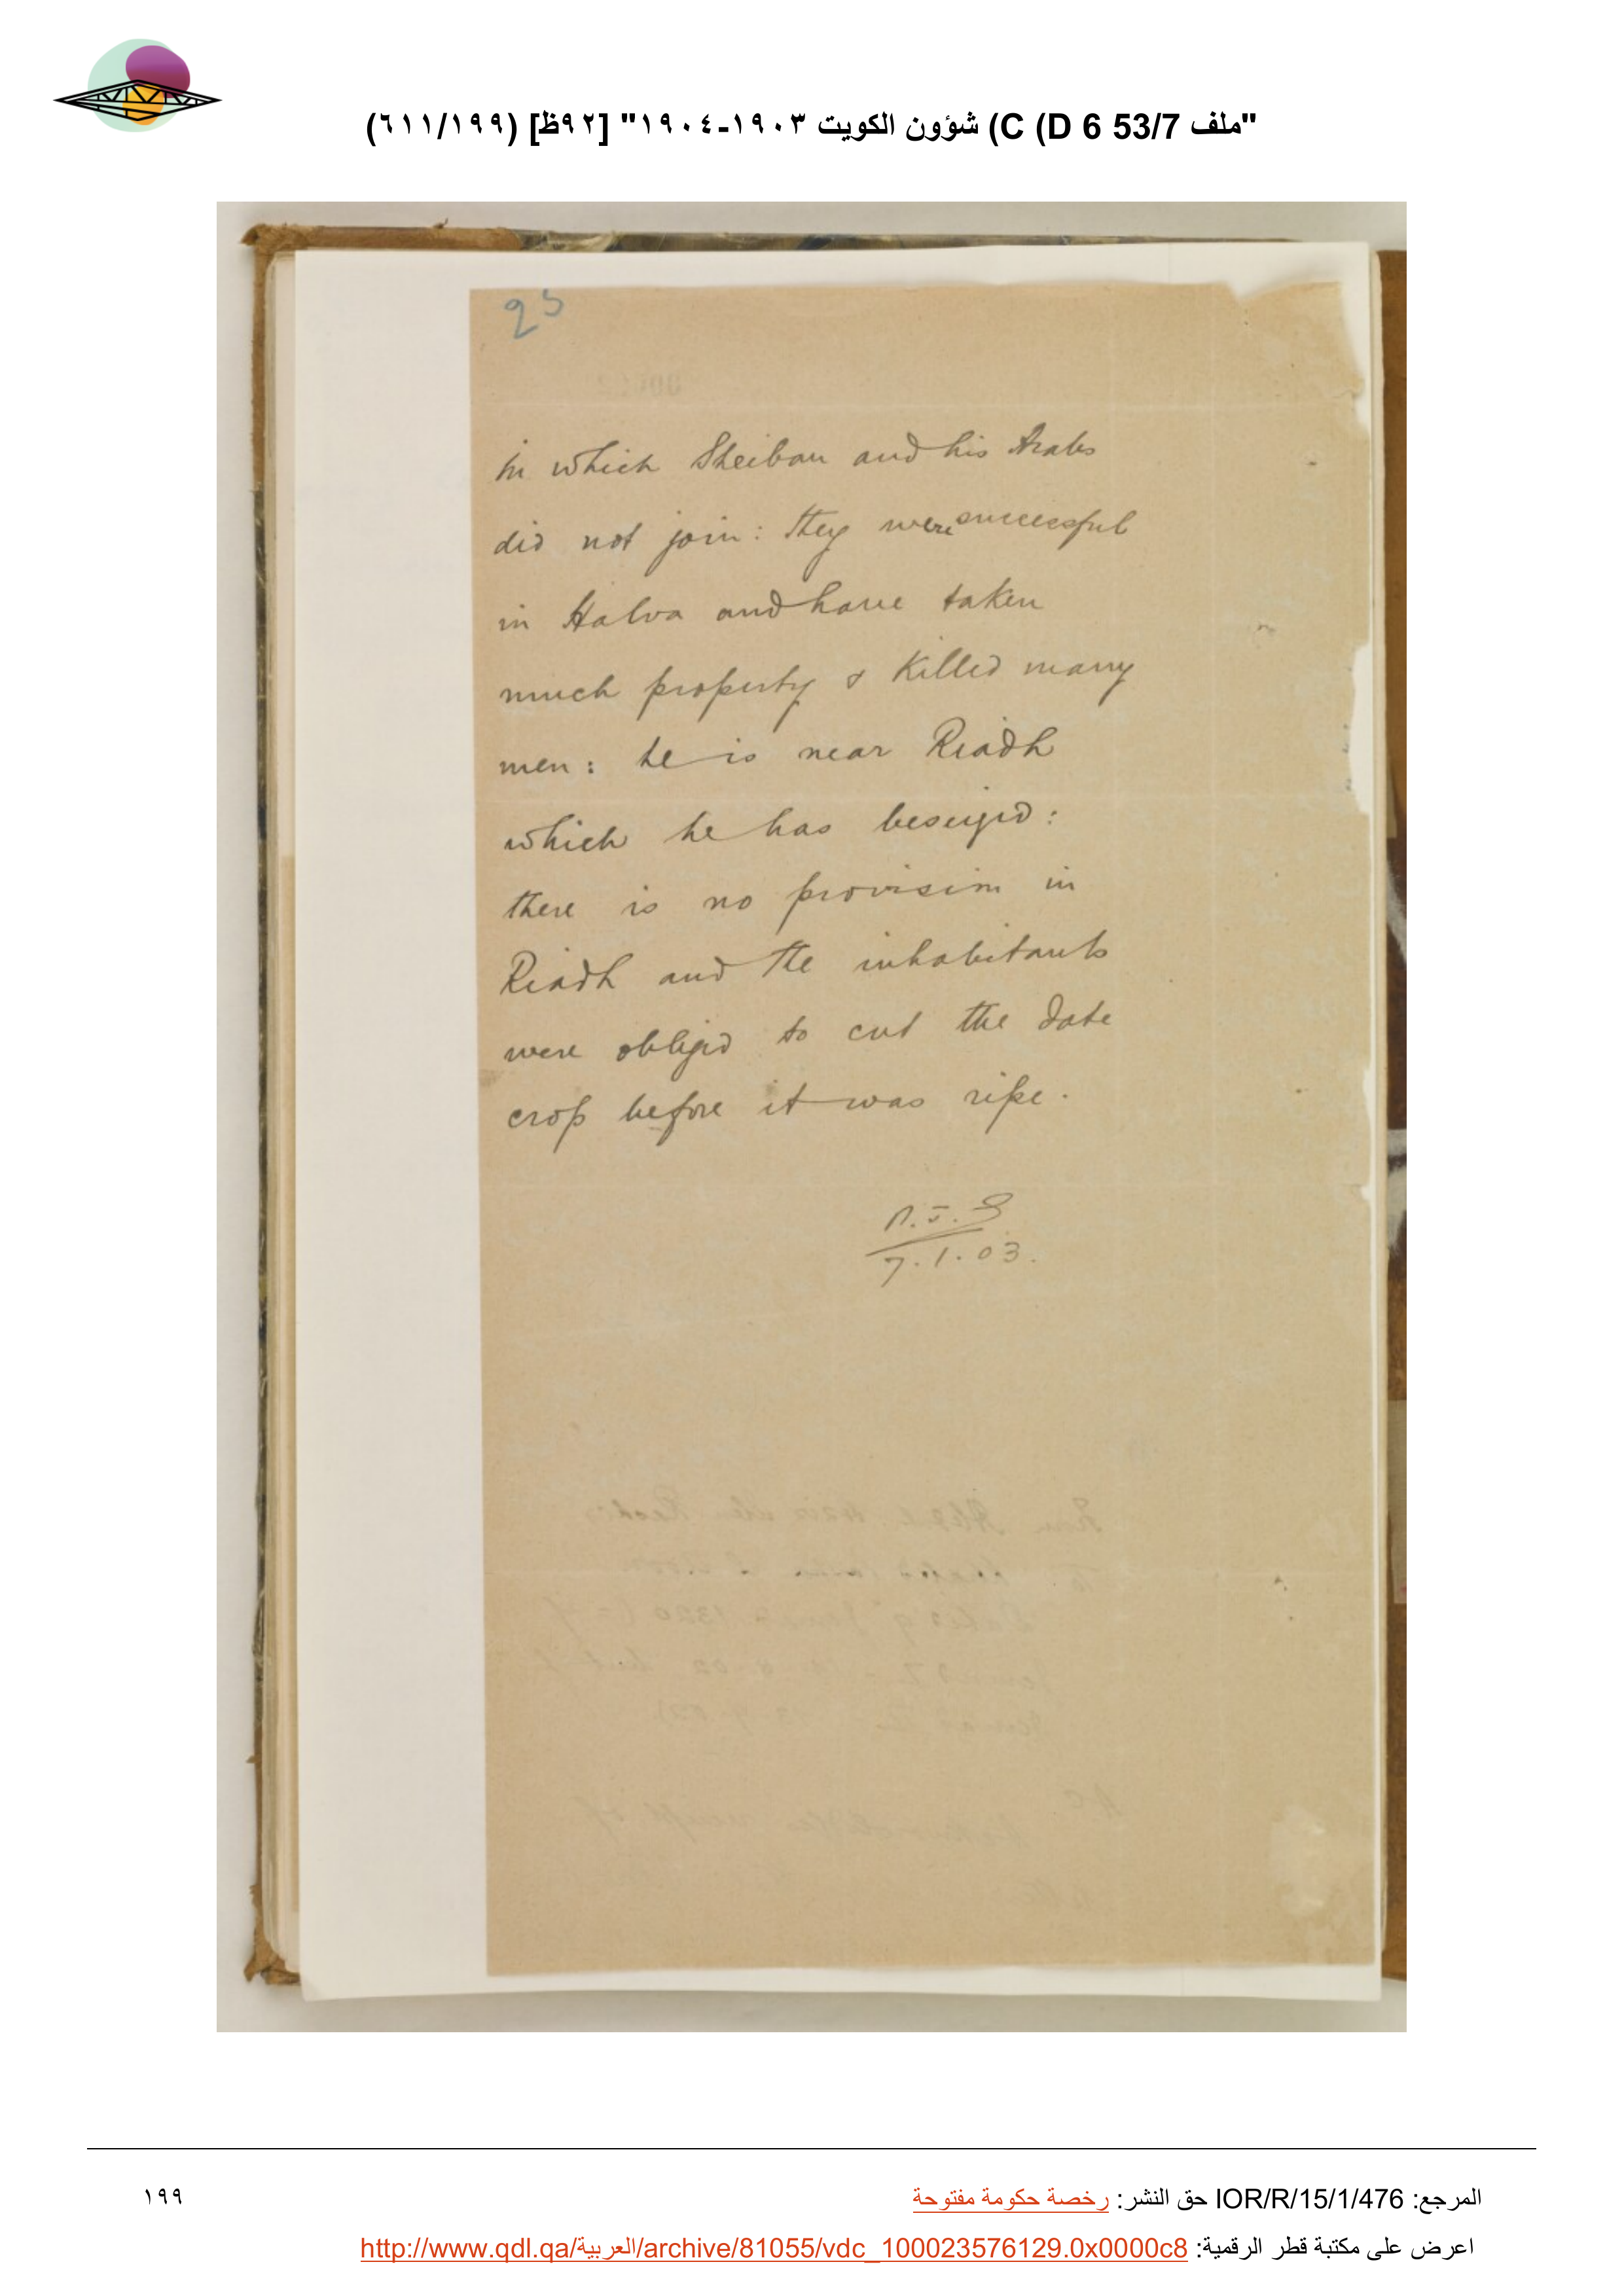 "ملف 53/7 C (D 6) شؤون الكويت ١٩٠٣-١٩٠٤" [٩٢ظ] (٦١١/١٩٩)
25
in which Sheiban and his Arabs
did not join: they were successful
in Halva and have taken
much property & killed many
men: he is near Riadh
which he has beseiged:
there is no provision in
Riadh and the inhabitants
were obliged to cut the date
crop before it was ripe.
7.1.03.
المرجع: IOR/R/15/1/476 حق النشر: رخصة حكومة مفتوحة
١٩٩
اعرض على مكتبة قطر الرقمية: http://www.qdl.qa/العربية/archive/81055/vdc_100023576129.0x0000c8